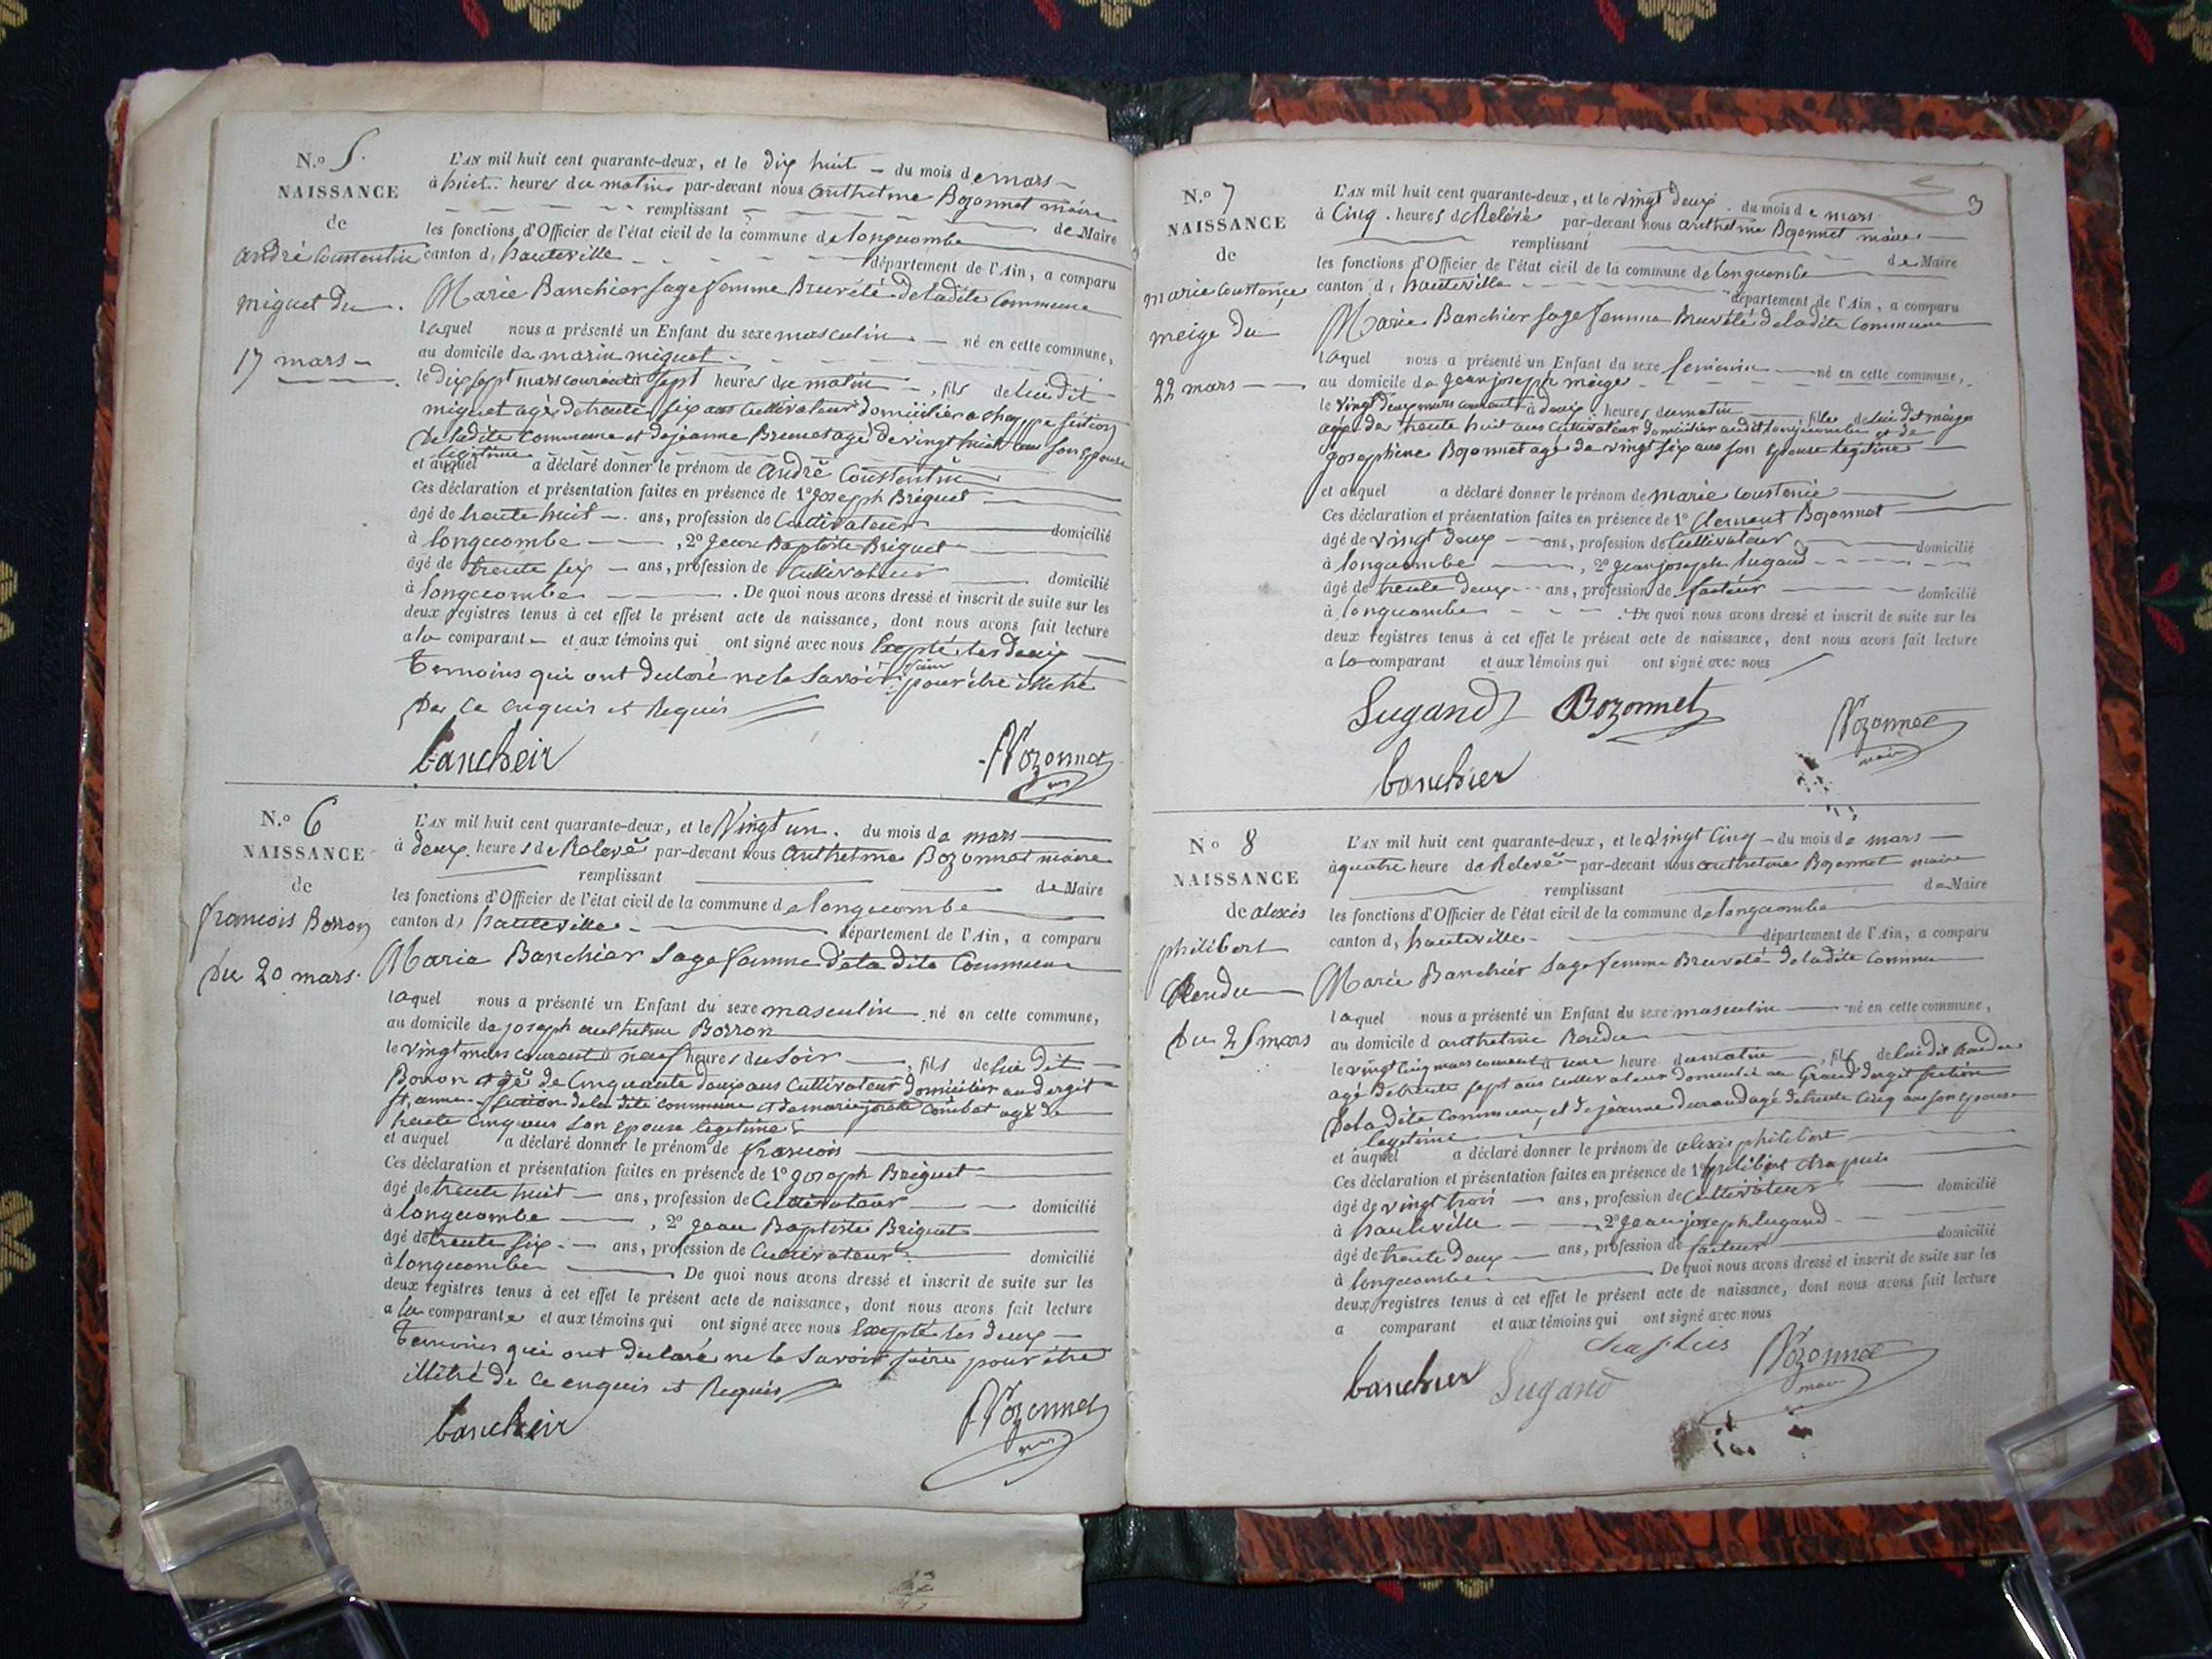 N.o 5.
NAISSANCE
de
andré Constentin
miguet du
17 mars
L'AN mil huit cent quarante-deux, et le dix huit du mois de mars
à huit heures du matin par-devant nous anthelme Bozonnet maire
remplissant de Maire
les fonctions d'Officier de l'état civil de la commune de longecombe
canton d, hauteville département de l'Ain, a comparu
Marie Banchier sage femme Brevété de la dite Commune
laquel nous a présenté un Enfant du sexe masculin né en cette commune,
au domicile de marin miguet
le dix sept mars courant à sept heures du matin, fils de lui dit
miguet agé de trente six ans cultivateur domicilier a section
de la dite commune et de jeanne agé de vingt huit ans son epouse
legitime
et auquel a déclaré donner le prénom de andré Constentin
Ces déclaration et présentation faites en présence de 1º joseph Briguet
âgé de trente huit ans, profession de Cultivateur domicilié
à longecombe, 2º jean Baptiste Briguet
âgé de trente six ans, profession de cultivateur domicilié
à longecombe. De quoi nous avons dressé et inscrit de suite sur les
deux registres tenus à cet effet le présent acte de naissance, dont nous avons fait lecture
a la comparante et aux témoins qui ont signé avec nous Excepté les deux
temoins qui ont declaré ne le savoir faire pour être illetré
de ce enquis et Requis
bancheir Bozonnet
N.o 6
NAISSANCE
de
francois Borron
du 20 mars.
L'AN mil huit cent quarante-deux, et le Vingt un. du mois de mars
à deux heures de Relevé par-devant nous anthelme Bozonnet maire
remplissant de Maire
les fonctions d'Officier de l'état civil de la commune de longecombe
canton d, hauteville département de l'Ain, a comparu
Marie Banchier sage femme de la dite Commune
laquel nous a présenté un Enfant du sexe masculin né en cette commune,
au domicile de joseph anthelme Borron
le vingt mars courant à neuf heures du soir, fils de lui dit
Borron agé de Cinquante deux ans cultivateur domicilier au dergit
section de la dite commune et de marie agé de
trente cinq ans son epouse legitime
et auquel a déclaré donner le prénom de francois
Ces déclaration et présentation faites en présence de 1º joseph Briguet
âgé de trente huit ans, profession de Cultivateur domicilié
à longecombe, 2º jean Baptiste Briguet
âgé de trente six ans, profession de Cultivateur domicilié
à longecombe De quoi nous avons dressé et inscrit de suite sur les
deux registres tenus à cet effet le présent acte de naissance, dont nous avons fait lecture
a la comparante et aux témoins qui ont signé avec nous Excepté les deux
temoins qui ont declaré ne le savoir faire pour être
illetré de ce enquis et Requis
bancheir Bozonnet
3
N.o 7
NAISSANCE
de
marie Constencie
meige du
22 mars
L'AN mil huit cent quarante-deux, et le vingt deux du mois de mars
à Cinq heures de Relevé par-devant nous anthelme Bozonnet maire
remplissant de Maire
les fonctions d'Officier de l'état civil de la commune de longecombe
canton d, hauteville département de l'Ain, a comparu
Marie Banchier sage femme Brevété de la dite Commune
laquel nous a présenté un Enfant du sexe feminin né en cette commune,
au domicile de jean joseph meige
le vingt deux mars courant à deux heures du matin, fille de lui dit meige
agé de trente huit ans cultivateur domicilier audit longecombe et de
josephine Bozonnet agé de vingt six ans son epouse legitime
et auquel a déclaré donner le prénom de marie Constencie
Ces déclaration et présentation faites en présence de 1º Clement Bozonnet
âgé de vingt deux ans, profession de Cultivateur domicilié
à longecombe, 2º jean joseph lugand
âgé de trente deux ans, profession de facteur domicilié
à longecombe. De quoi nous avons dressé et inscrit de suite sur les
deux registres tenus à cet effet le présent acte de naissance, dont nous avons fait lecture
a la comparant et aux témoins qui ont signé avec nous
Lugand Bozonnet Bozonnet
maire
banchier
No 8
NAISSANCE
de alexis
philibert
Rendu
du 25 mars
L'AN mil huit cent quarante-deux, et le vingt Cinq du mois de mars
à quatre heure de Relevé par-devant nous anthelme Bozonnet maire
remplissant de Maire
les fonctions d'Officier de l'état civil de la commune de longecombe
canton d, hauteville département de l'Ain, a comparu
Marie Banchier sage femme Brevété de la dite Commune
laquel nous a présenté un Enfant du sexe masculin né en cette commune,
au domicile d anthelme Rendu
le vingt Cinq mars courant à une heure du matin, fils de lui dit Rendu
agé de trente sept ans cultivateur domicilié au Grand dergit section
de la dite commune, et de jeanne durand agé de trente Cinq ans son epouse
legitime
et auquel a déclaré donner le prénom de alexis philibert
Ces déclaration et présentation faites en présence de 1º philibert chapuis
âgé de vingt trois ans, profession de Cultivateur domicilié
à hauteville, 2º jean joseph lugand
âgé de trente deux ans, profession de facteur domicilié
à longecombe. De quoi nous avons dressé et inscrit de suite sur les
deux registres tenus à cet effet le présent acte de naissance, dont nous avons fait lecture
a comparant et aux témoins qui ont signé avec nous
chapuis Bozonnet
banchier Lugand maire